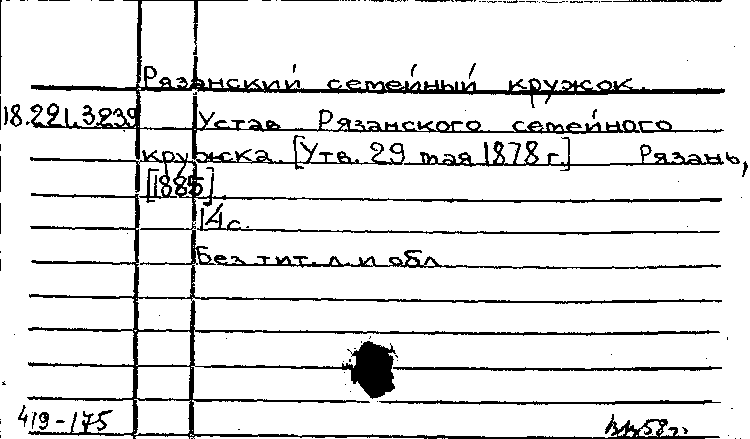 Рязанский семейный кружок.
18.221.3239 Устав Рязанского семейного
кружка. [Утв. 29 мая 1878 г.] Рязань,
[1885].
14 с.
Без тит. л. и обл.
419-175